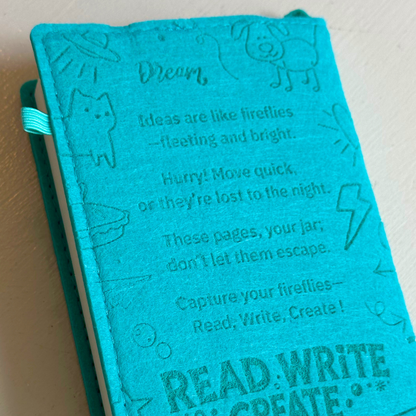 Dream
Ideas are like fireflies
—fleeting and bright.
Hurry! Move quick,
or they're lost to the night.
These pages, your jar;
don't let them escape.
Capture your fireflies—
Read, Write, Create!
READ WRiTE
CREATE